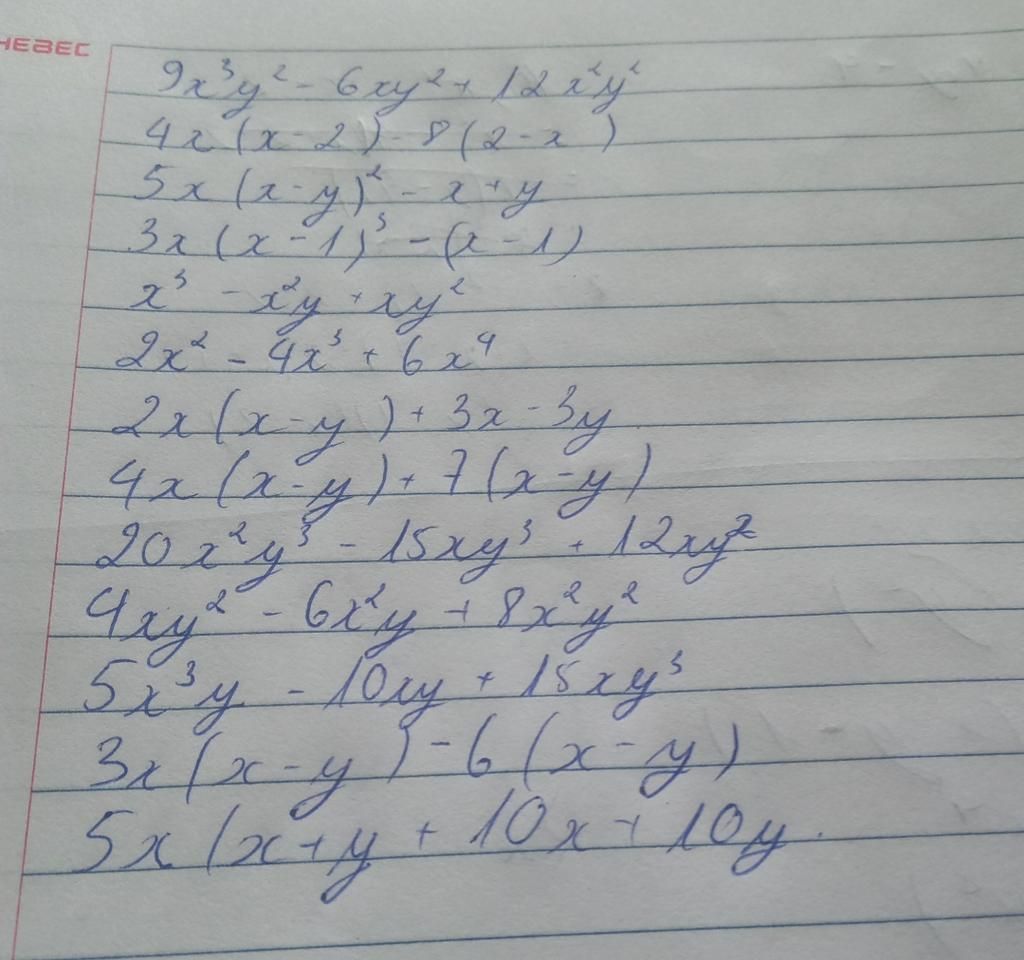 НЕВЕС
9x³y² - 6xy² + 12x²y²
4x(x-2) - 8(2-x)
5x(x-y)² - x + y
3x(x-1)³ - (x-1)
x³ - x²y + xy²
2x² - 4x³ + 6x⁴
2x(x-y) + 3x - 3y
4x(x-y) + 7(x-y)
20x²y³ - 15xy³ + 12xy²
4xy² - 6x²y + 8x²y²
5x³y - 10xy + 15xy³
3x(x-y) - 6(x-y)
5x(x+y + 10x + 10y.